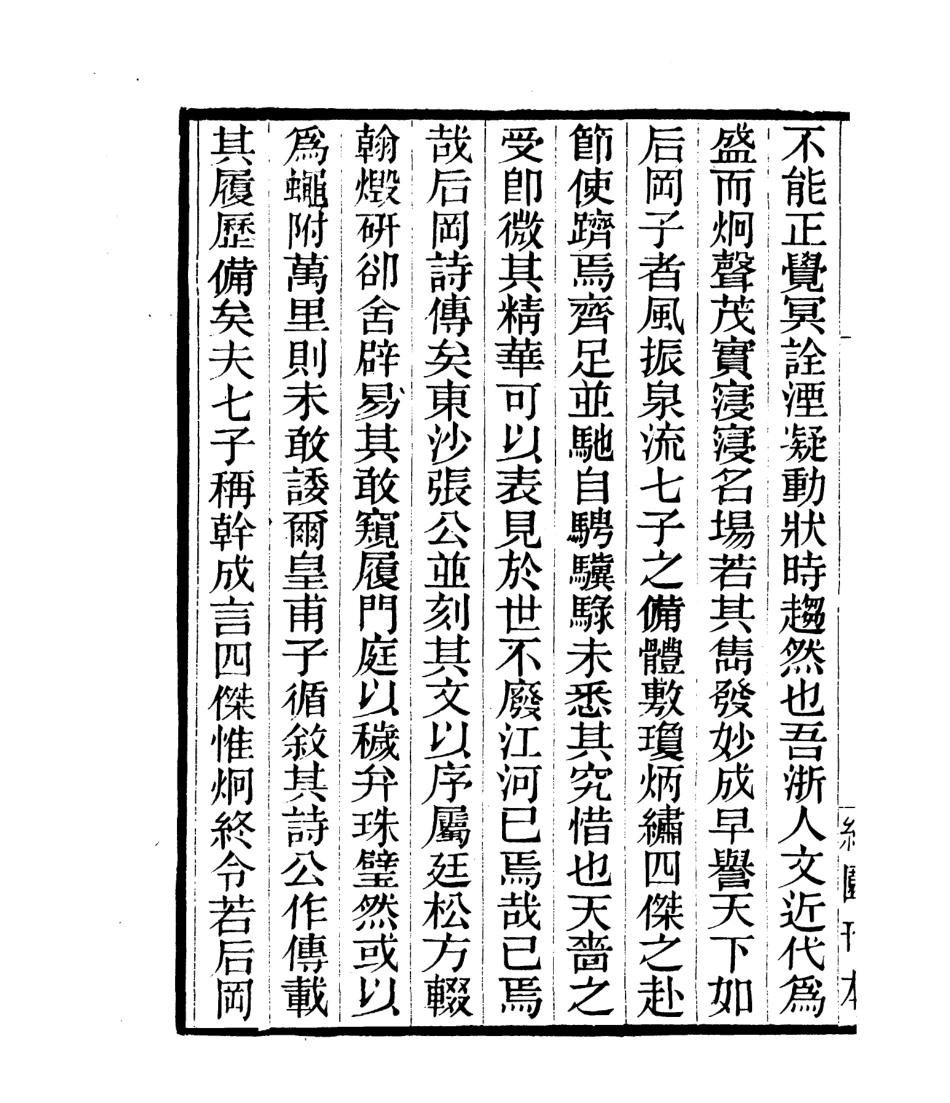 不能正覺冥詮湮凝動狀時趨然也吾浙人文近代爲
盛而炯聲茂實寖寖名場若其雋發妙成早譽天下如
后岡子者風振泉流七子之備體敷瓊炳繡四傑之赴
節使躋焉齊足並馳自騁驥騄未悉其究惜也天嗇之
受卽微其精華可以表見於世不廢江河已焉哉已焉
哉后岡詩傳矣東沙張公並刻其文以序屬廷松方輟
翰燬研卻舍辟易其敢窺履門庭以穢弁珠璧然或以
爲蠅附萬里則未敢諉爾皇甫子循敘其詩公作傳載
其履歷備矣夫七子稱幹成言四傑惟炯終令若后岡
刊本